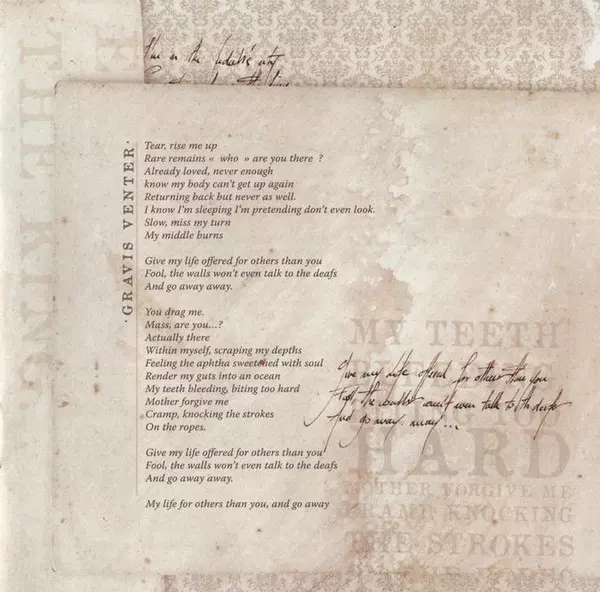 This is the
THE KING
·GRAVIS VENTER·
Tear, rise me up
Rare remains « who » are you there ?
Already loved, never enough
know my body can't get up again
Returning back but never as well.
I know I'm sleeping I'm pretending don't even look.
Slow, miss my turn
My middle burns
Give my life offered for others than you
Fool, the walls won't even talk to the deafs
And go away away.
You drag me.
Mass, are you...?
Actually there
Within myself, scraping my depths
Feeling the aphtha sweetened with soul
Render my guts into an ocean
My teeth bleeding, biting too hard
Mother forgive me
Cramp, knocking the strokes
On the ropes.
Give my life offered for others than you
Fool, the walls won't even talk to the deafs
And go away away.
My life for others than you, and go away
MY TEETH
HARD
MOTHER FORGIVE ME
CRAMP KNOCKING
THE STROKES
Give my life offered for others than you
Fool, the walls won't even talk to th deafs
And go away, away...